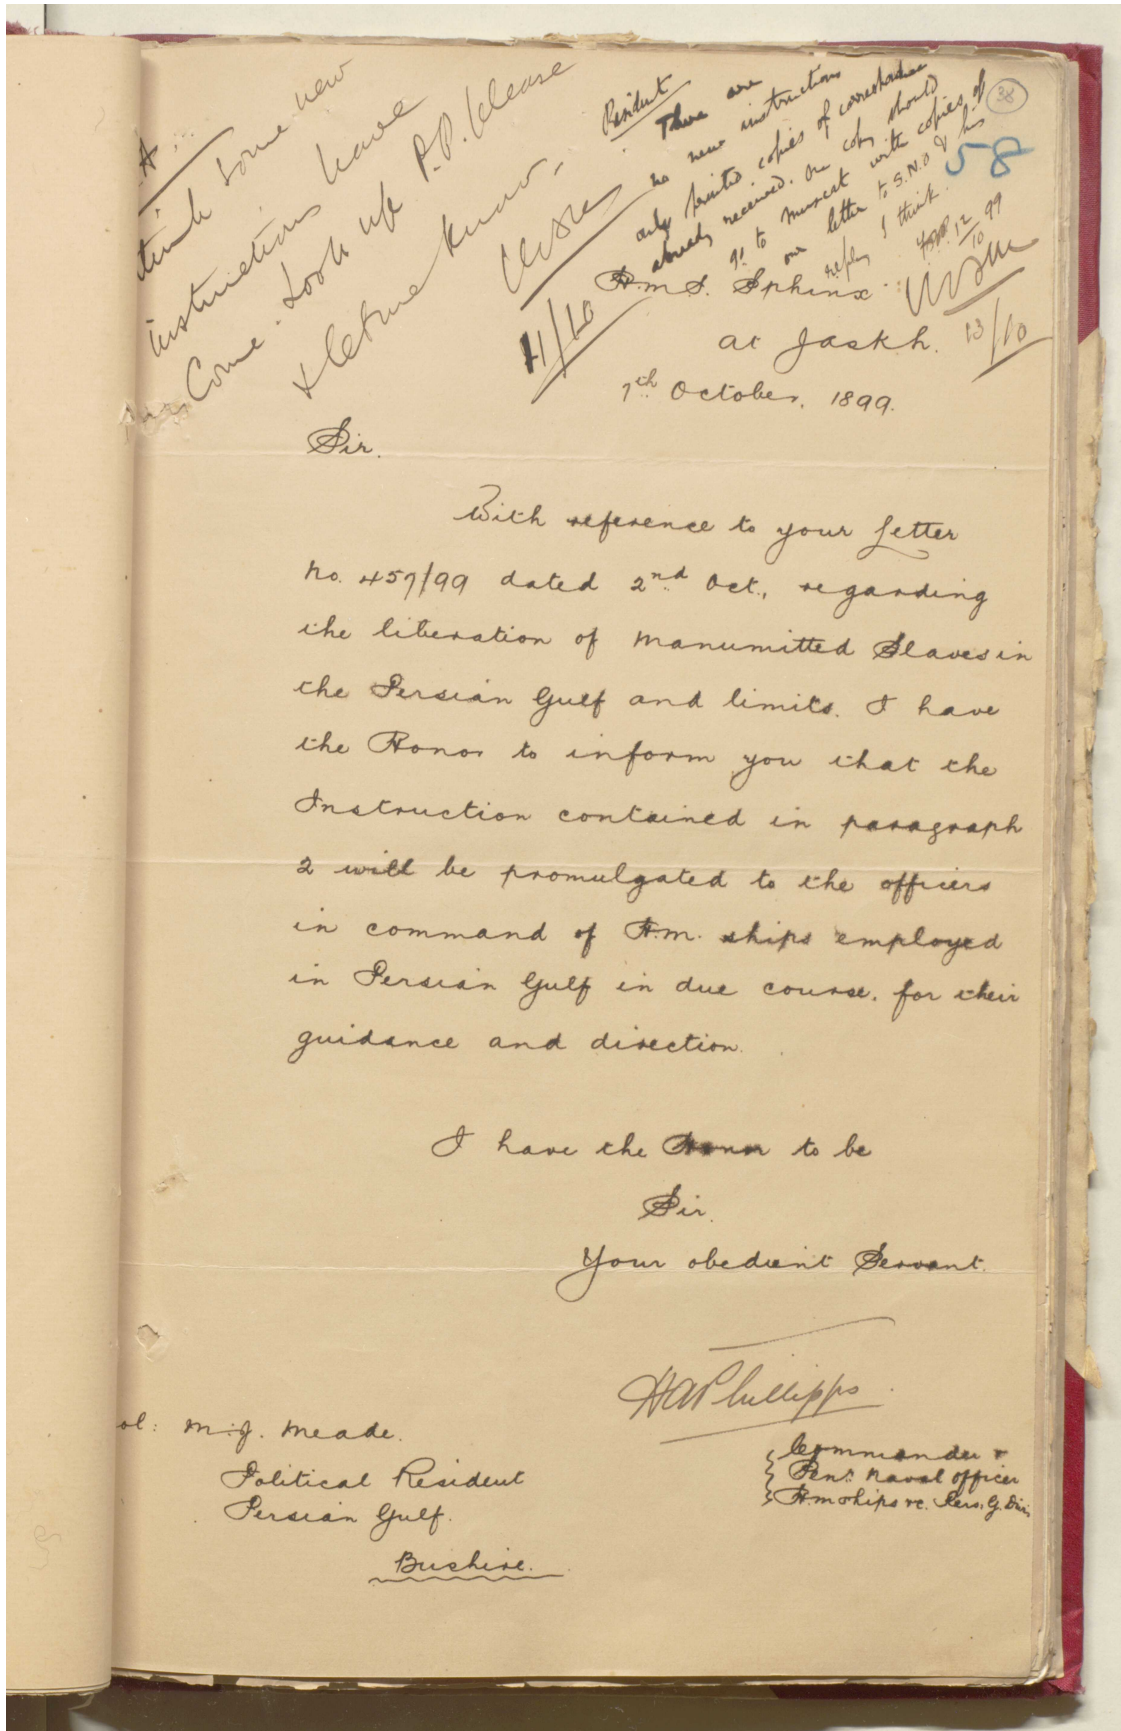 think some new
instructions have
Come. Look up P.P. please
& let me know
11/10
Resident
There are
no new instructions
only printed copies of correspondence
already received. One copy should
go to Muscat with copies of
our letter to S.N.O & his
reply I think.
12/10 99
13/10
38
58
H.M.S. Sphinx
at Jaskh.
7th October, 1899.
Sir.
With reference to your letter
No. 457/99 dated 2nd Oct., regarding
the liberation of Manumitted Slaves in
the Persian Gulf and limits. I have
the Honor to inform you that the
Instruction contained in paragraph
2 will be promulgated to the officers
in command of H.M. ships employed
in Persian Gulf in due course, for their
guidance and direction.
I have the Honor to be
Sir.
Your obedient Servant.
HAPhillipps
Commander &
Senr. Naval Officer
H.M. Ships &c. Pers. G. Divn
ol: M.J. Meade.
Political Resident
Persian Gulf.
Bushire.